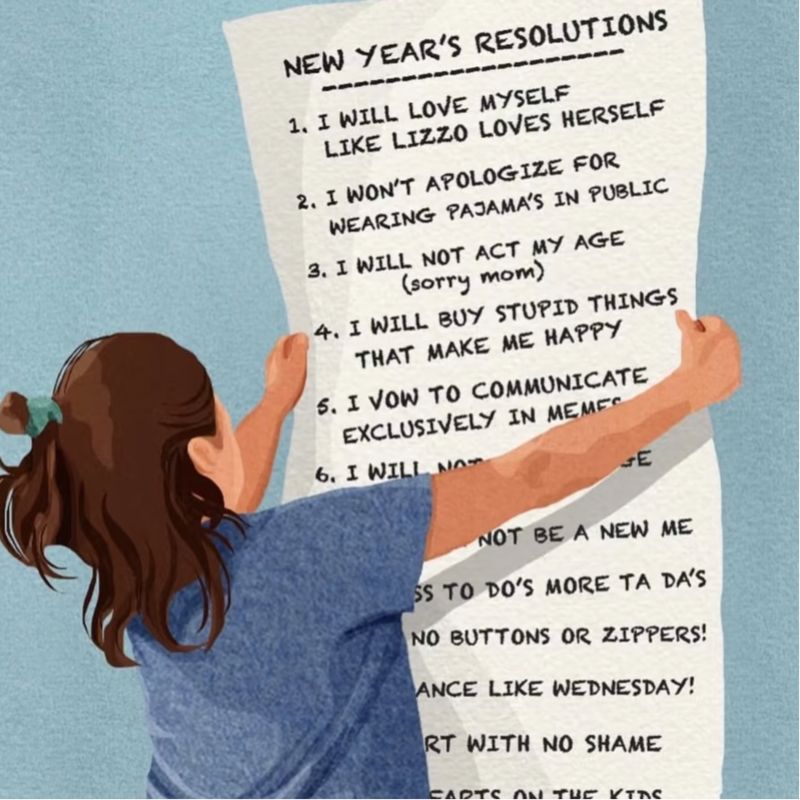 NEW YEAR'S RESOLUTIONS
1. I WILL LOVE MYSELF
LIKE LIZZO LOVES HERSELF
2. I WON'T APOLOGIZE FOR
WEARING PAJAMA'S IN PUBLIC
3. I WILL NOT ACT MY AGE
(sorry mom)
4. I WILL BUY STUPID THINGS
THAT MAKE ME HAPPY
5. I VOW TO COMMUNICATE
EXCLUSIVELY IN MEMES
6. I WILL NOT
NOT BE A NEW ME
SS TO DO'S MORE TA DA'S
NO BUTTONS OR ZIPPERS!
ANCE LIKE WEDNESDAY!
RT WITH NO SHAME
EARTS ON THE KIDS